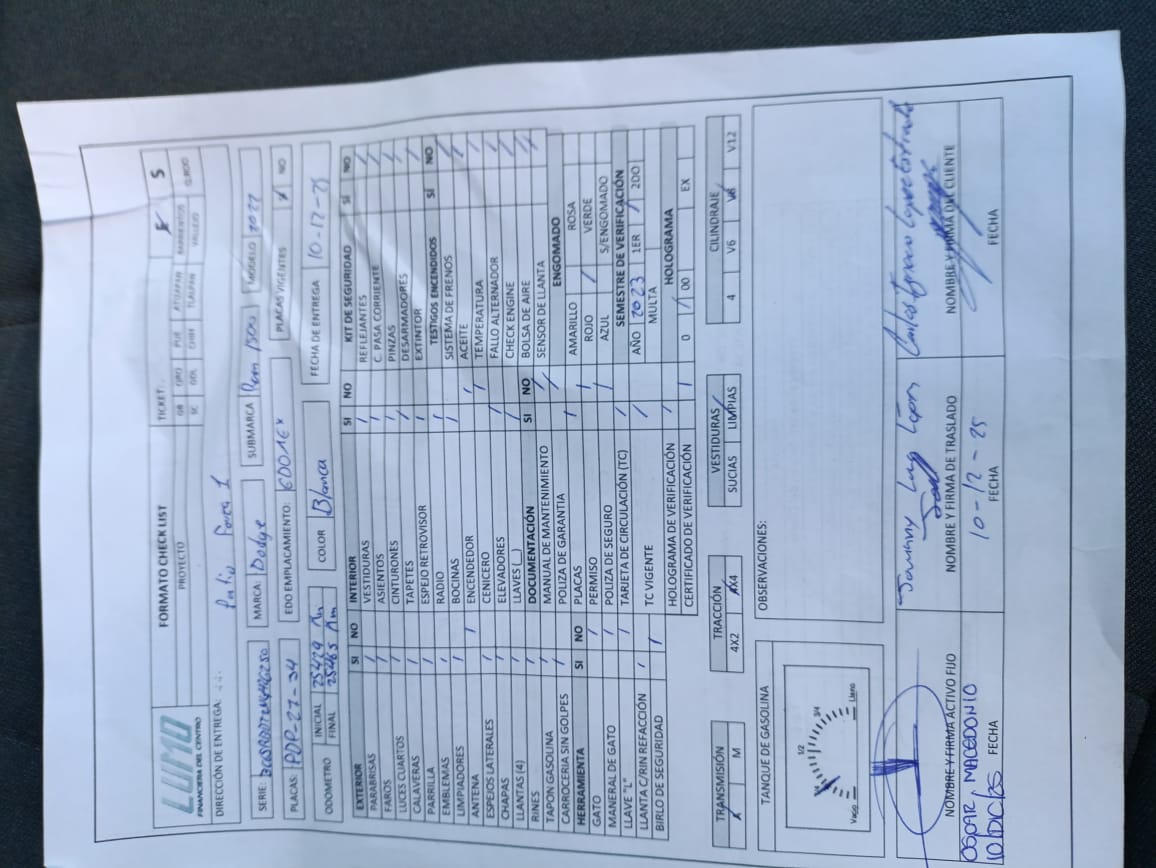 LUMO
FINANCIERA DEL CENTRO
FORMATO CHECK LIST
TICKET:
PROYECTO
GB QRO PUE ATIZAPAN
SC GDL CHIH TLALPAN VALLEJO
DIRECCIÓN DE ENTREGA: Patio Ponta 1
SERIE:
MARCA: Dodge
SUBMARCA Ram 1500
MODELO 2022
PLACAS: PDP-27-34
EDO EMPLACAMIENTO: EDOMEX
PLACAS VIGENTES
NO
ODOMETRO
INICIAL 25429 Km
FINAL 25465 Km
COLOR Blanca
FECHA DE ENTREGA 10-12-25
EXTERIOR SI NO
PARABRISAS /
FAROS /
LUCES CUARTOS /
CALAVERAS /
PARRILLA /
EMBLEMAS /
LIMPIADORES /
ANTENA /
ESPEJOS LATERALES /
CHAPAS /
LLANTAS (4) /
RINES /
TAPON GASOLINA /
CARROCERIA SIN GOLPES /
HERRAMIENTA SI NO
GATO /
MANERAL DE GATO /
LLAVE "L" /
LLANTA C/RIN REFACCIÓN /
BIRLO DE SEGURIDAD /
INTERIOR SI NO
VESTIDURAS /
ASIENTOS /
CINTURONES /
TAPETES /
ESPEJO RETROVISOR /
RADIO /
BOCINAS /
ENCENDEDOR /
CENICERO /
ELEVADORES /
LLAVES (__) /
DOCUMENTACIÓN SI NO
MANUAL DE MANTENIMIENTO /
POLIZA DE GARANTIA /
PLACAS /
PERMISO /
POLIZA DE SEGURO /
TARJETA DE CIRCULACIÓN (TC) /
TC VIGENTE /
HOLOGRAMA DE VERIFICACIÓN /
CERTIFICADO DE VERIFICACIÓN /
KIT DE SEGURIDAD SÍ NO
REFLEJANTES /
C. PASA CORRIENTE /
PINZAS /
DESARMADORES /
EXTINTOR /
TESTIGOS ENCENDIDOS SÍ NO
SISTEMA DE FRENOS /
ACEITE /
TEMPERATURA /
FALLO ALTERNADOR /
CHECK ENGINE /
BOLSA DE AIRE /
SENSOR DE LLANTA /
ENGOMADO
AMARILLO ROSA
ROJO / VERDE
AZUL S/ENGOMADO
SEMESTRE DE VERIFICACIÓN
AÑO 2023 1ER / 2DO
MULTA
HOLOGRAMA
0 / 00 EX
TRANSMISIÓN
M
TRACCIÓN
4X2 4X4
VESTIDURAS
SUCIAS LIMPIAS
CILINDRAJE
4 V6 V8 V12
TANQUE DE GASOLINA
Vacio 1/4 1/2 3/4 Lleno
OBSERVACIONES:
NOMBRE Y FIRMA ACTIVO FIJO
OSCAR MACEDONIO
10/DIC/25 FECHA
NOMBRE Y FIRMA DE TRASLADO
10-12-25
FECHA
NOMBRE Y FIRMA DEL CLIENTE
FECHA